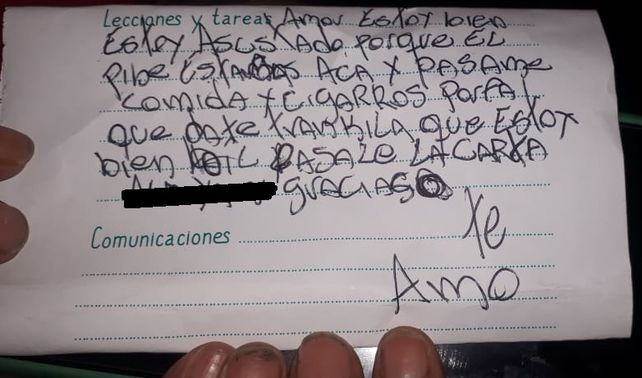 Lecciones y tareas Amor Estoy bien
Estoy ASUSTADO porque EL
pibe ESTABAS ACA Y PASAME
COMIDA Y CIGARROS PORFA
que DATE TRANKILA que ESTOY
bien PASALE LA CARTA
GRACIAS
Comunicaciones
Te
Amo